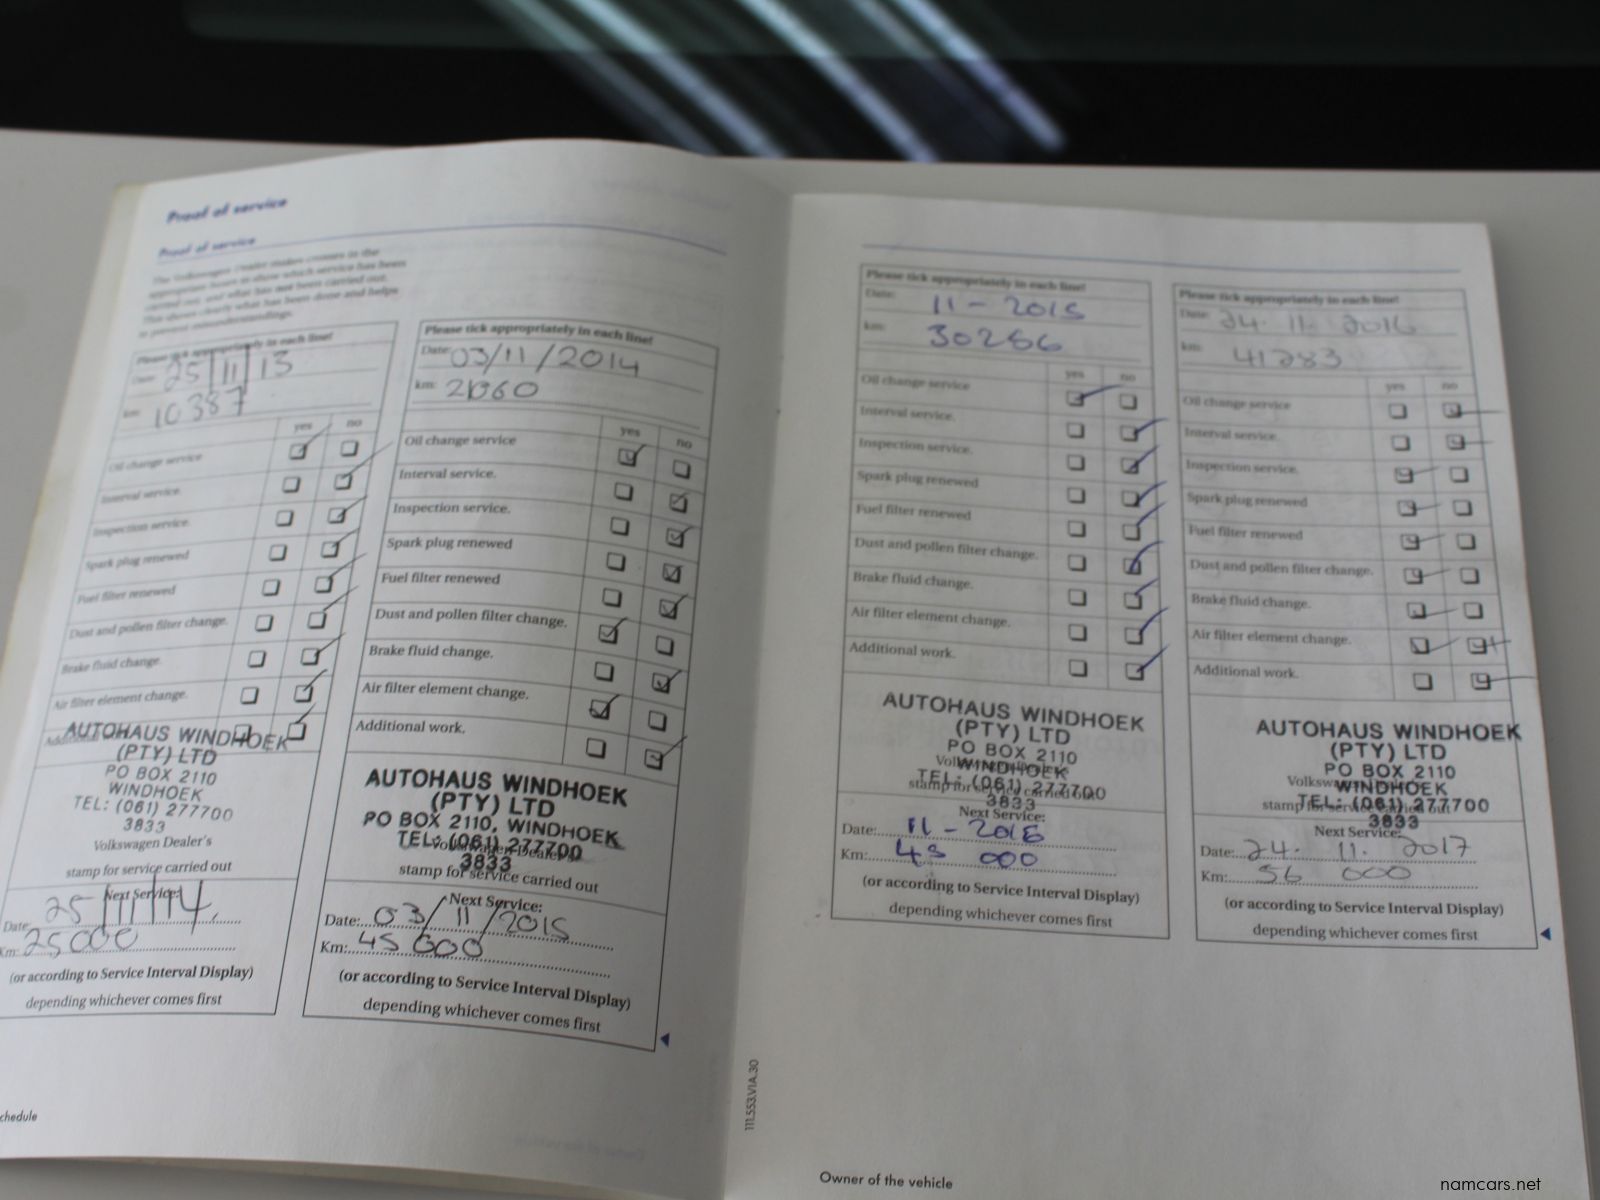 Proof of service
Proof of service
The Volkswagen Dealer makes crosses in the
appropriate boxes to show which service has been
carried out, and what has not been carried out.
This shows clearly what has been done and helps
to prevent misunderstandings.
Please tick appropriately in each line!
Date: 25/11/13
km: 10387
yes no
Oil change service
Interval service.
Inspection service.
Spark plug renewed
Fuel filter renewed
Dust and pollen filter change.
Brake fluid change.
Air filter element change.
AUTOHAUS WINDHOEK
(PTY) LTD
PO BOX 2110
WINDHOEK
TEL: (061) 277700
3833
Volkswagen Dealer's
stamp for service carried out
Next Service:
Date: 25/11/14
Km: 25000
(or according to Service Interval Display)
depending whichever comes first
Please tick appropriately in each line!
Date: 03/11/2014
km:
yes no
Oil change service
Interval service.
Inspection service.
Spark plug renewed
Fuel filter renewed
Dust and pollen filter change.
Brake fluid change.
Air filter element change.
Additional work.
AUTOHAUS WINDHOEK
(PTY) LTD
PO BOX 2110, WINDHOEK
TEL: (061) 277700
3833
Volkswagen Dealer's
stamp for service carried out
Next Service:
Date: 03/11/2015
Km: 45 000
(or according to Service Interval Display)
depending whichever comes first
chedule
Please tick appropriately in each line!
Date: 11-2015
km: 30286
yes no
Oil change service
Interval service.
Inspection service.
Spark plug renewed
Fuel filter renewed
Dust and pollen filter change.
Brake fluid change.
Air filter element change.
Additional work.
AUTOHAUS WINDHOEK
(PTY) LTD
PO BOX 2110
WINDHOEK
TEL: (061) 277700
3833
stamp for service carried out
Next Service:
Date: 11-2016
Km: 45 000
(or according to Service Interval Display)
depending whichever comes first
Please tick appropriately in each line!
Date: 24. 11. 2016
km: 41283
yes no
Oil change service
Interval service.
Inspection service.
Spark plug renewed
Fuel filter renewed
Dust and pollen filter change.
Brake fluid change.
Air filter element change.
Additional work.
AUTOHAUS WINDHOEK
(PTY) LTD
PO BOX 2110
WINDHOEK
TEL: (061) 277700
3833
stamp for service carried out
Next Service:
Date: 24. 11. 2017
Km: 56 000
(or according to Service Interval Display)
depending whichever comes first
111.553.V1A.30
Owner of the vehicle
namcars.net